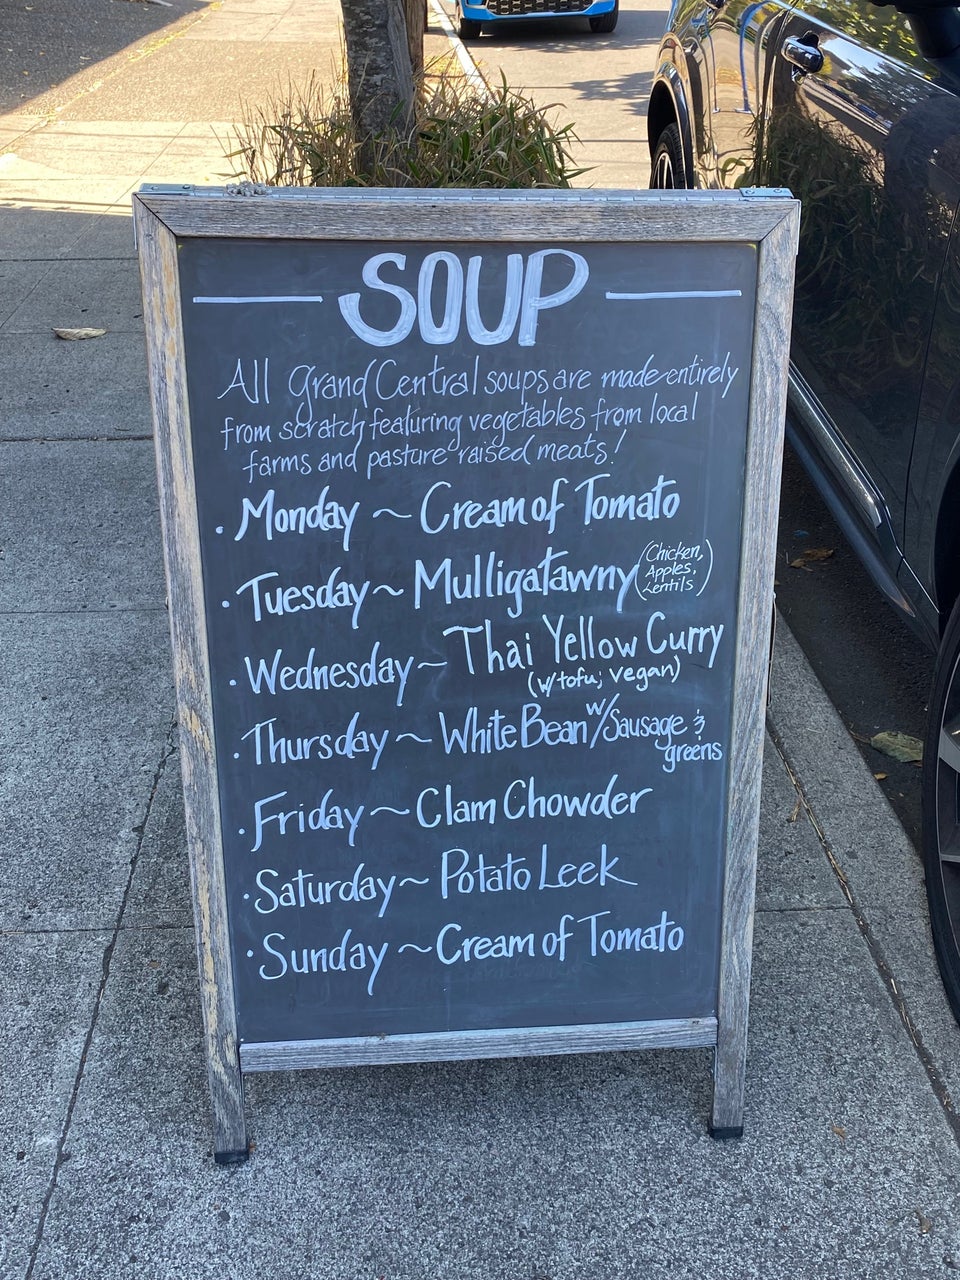 SOUP
All Grand Central soups are made entirely
from scratch featuring vegetables from local
farms and pasture raised meats!
· Monday ~ Cream of Tomato
· Tuesday ~ Mulligatawny (Chicken, Apples, Lentils)
· Wednesday ~ Thai Yellow Curry
(w/tofu; vegan)
· Thursday ~ White Bean w/Sausage &
greens
· Friday ~ Clam Chowder
· Saturday ~ Potato Leek
· Sunday ~ Cream of Tomato